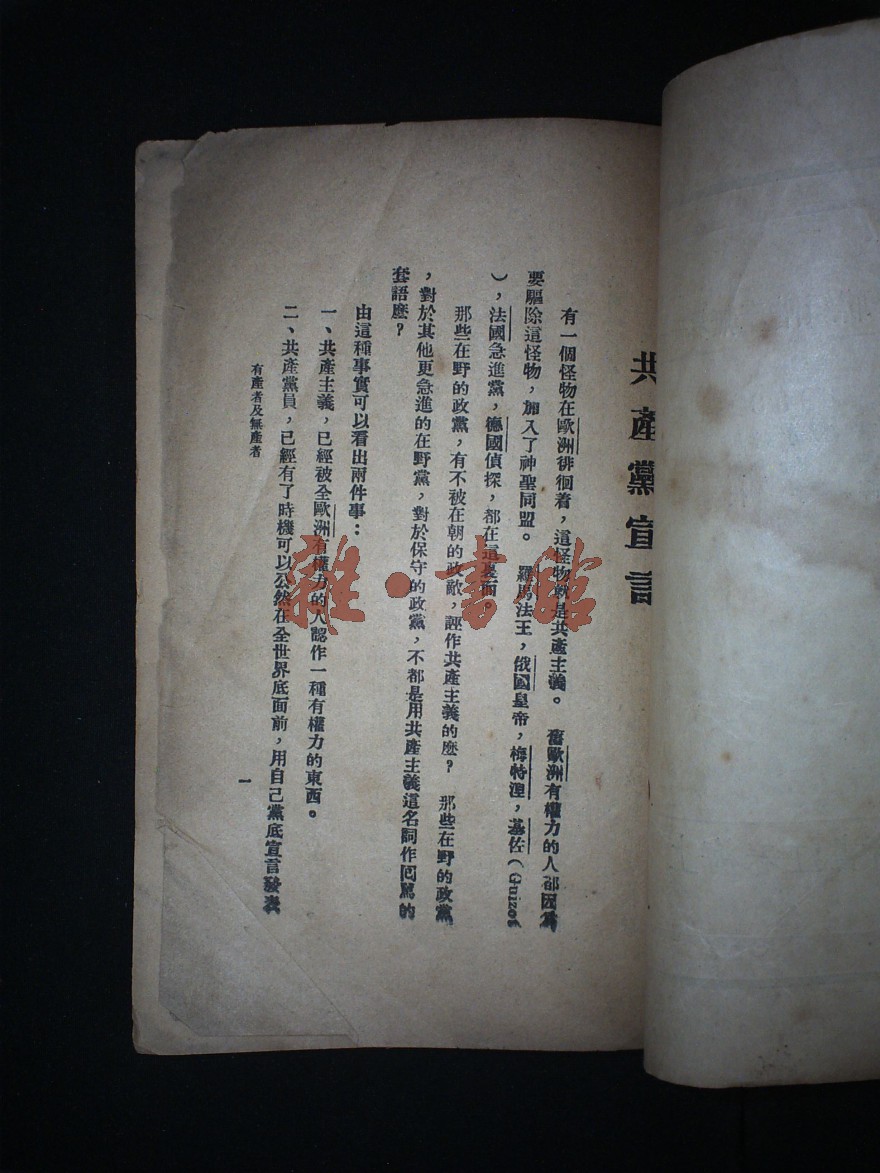 共產黨宣言
有一個怪物在歐洲徘徊着，這怪物就是共產主義。 舊歐洲有權力的人都因爲
要驅除這怪物，加入了神聖同盟。 羅馬法王，俄國皇帝，梅特涅，基佐（Guizot
），法國急進黨，德國偵探，都在這裏面。
那些在野的政黨，有不被在朝的政敵，誣作共產主義的麽？ 那些在野的政黨
，對於其他更急進的在野黨，對於保守的政黨，不都是用共產主義這名詞作回罵的
套語麽？
由這種事實可以看出兩件事：
一、共產主義，已經被全歐洲有權力的人認作一種有權力的東西。
二、共產黨員，已經有了時機可以公然在全世界底面前，用自己黨底宣言發表
有產者及無產者
一
雜·書館